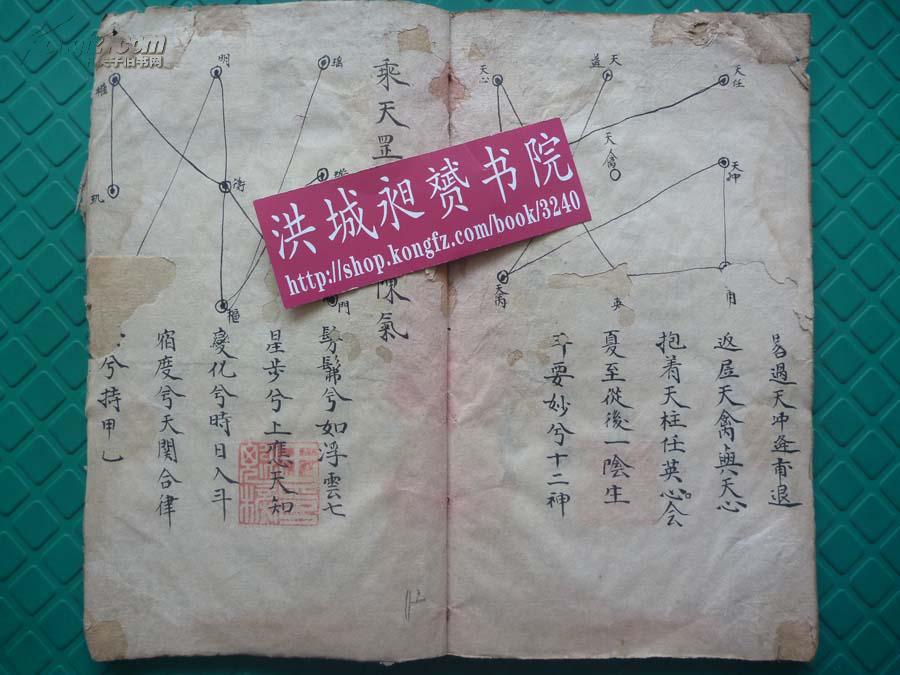 kongfz.com
孔夫子旧书网
洪城昶赟书院
http://shop.kongfz.com/book/3240
天任
天
蓬
天心
天禽
天冲
天芮
英
甫
昜過天冲逢甫退
返屋天禽與天心
抱着天柱任英心会
夏至從後一陰生
要妙兮十二神
乘天罡
陳氣
瑤
明
權
衡
璣
樞
門
髣髴兮如浮雲七
星步兮上應天知
變化兮時日入斗
宿度兮天関合律
兮持甲乙